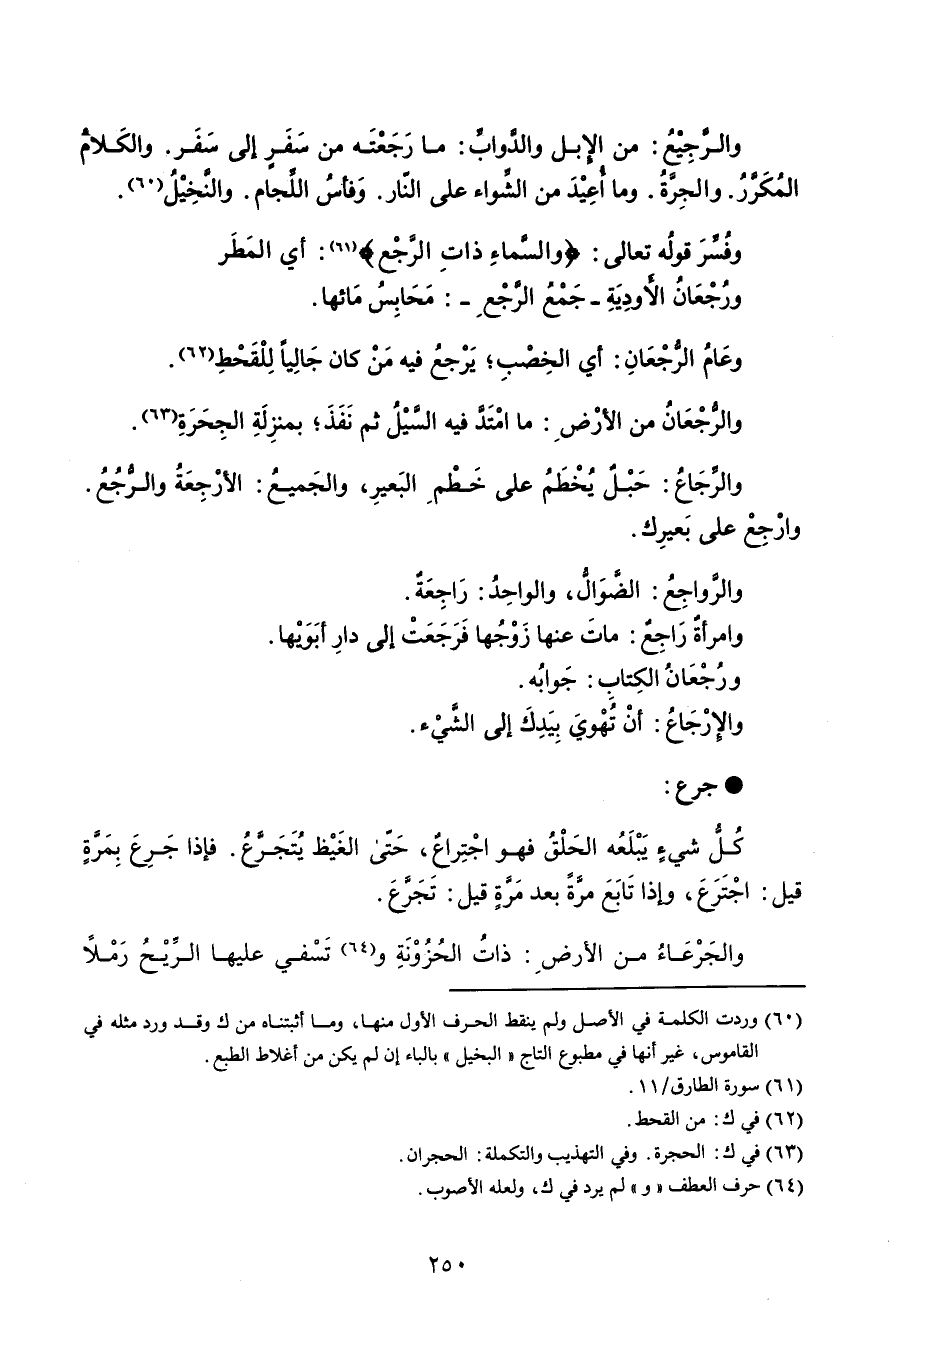 والـرَّجِيْعُ: من الإِبـل والدَّوابِّ: مـا رَجَعْتَـه من سَفَـرٍ إلى سَفَـر. والكَـلامُ
المُكَرَّرُ. والجِرَّةُ. وما أُعِيْدَ من الشِّواء على النّار. وَفأسُ اللِّجام. والنَّخِيْلُ(٦٠).
وفُسِّرَ قولُه تعالى: ﴿والسَّماءِ ذاتِ الرَّجْع﴾(٦١): أي المَطَر
ورُجْعَانُ الأَودِيَةِ ـ جَمْعُ الرَّجْعِ ـ: مَحَابِسُ مَائها.
وعَامُ الرُّجْعَانِ: أي الخِصْبِ؛ يَرْجعُ فيه مَنْ كان جَالِياً لِلْقَحْطِ(٦٢).
والرُّجْعَانُ من الأرْضِ: ما امْتَدَّ فيه السَّيْلُ ثم نَفَذَ؛ بمنزِلَةِ الجِحَرَةِ(٦٣).
والرِّجَاعُ: حَبْـلٌ يُخْطَمُ على خَـطْمِ البَعيرِ، والجَميـعُ: الأرْجِعَةُ والـرُّجُعُ.
وارْجِعْ على بَعيرِك.
والرَّواجِعُ: الضَّوَالُّ، والواحِدُ: رَاجِعَةٌ.
وامرأةٌ رَاجِعٌ: ماتَ عنها زَوْجُها فَرَجَعَتْ إلى دارِ أبَوَيْها.
ورُجْعَانُ الكِتابِ: جَوابُه.
والإِرْجَاعُ: أنْ تُهْوِيَ بِيَدِكَ إلى الشَّيْء.
● جرع:
كُـلُّ شيءٍ يَبْلَعُه الحَلْقُ فهـو اجْتِراعٌ، حَتّىٰ الغَيْظ يُتَجـرَّعُ. فإذا جَـرِعَ بِمَرَّةٍ
قيل: اجْتَرَعَ، وإذا تَابَعَ مرَّةً بعد مَرَّةٍ قيل: تَجَرَّعَ.
والجَرْعَـاءُ مـن الأرضِ: ذاتُ الحُزُوْنَةِ و(٦٤) تَسْفـي عليهـا الـرِّيْـحُ رَمْـلاً
(٦٠) وردت الكلمة في الأصل ولم ينقط الحرف الأول منهـا، ومـا أثبتنـاه من ك وقـد ورد مثله في
القاموس، غير أنها في مطبوع التاج « البخيل » بالباء إن لم يكن من أغلاط الطبع.
(٦١) سورة الطارق/١١.
(٦٢) في ك: من القحط.
(٦٣) في ك: الحجرة. وفي التهذيب والتكملة: الحجران.
(٦٤) حرف العطف « و » لم يرد في ك، ولعله الأصوب.
٢٥٠